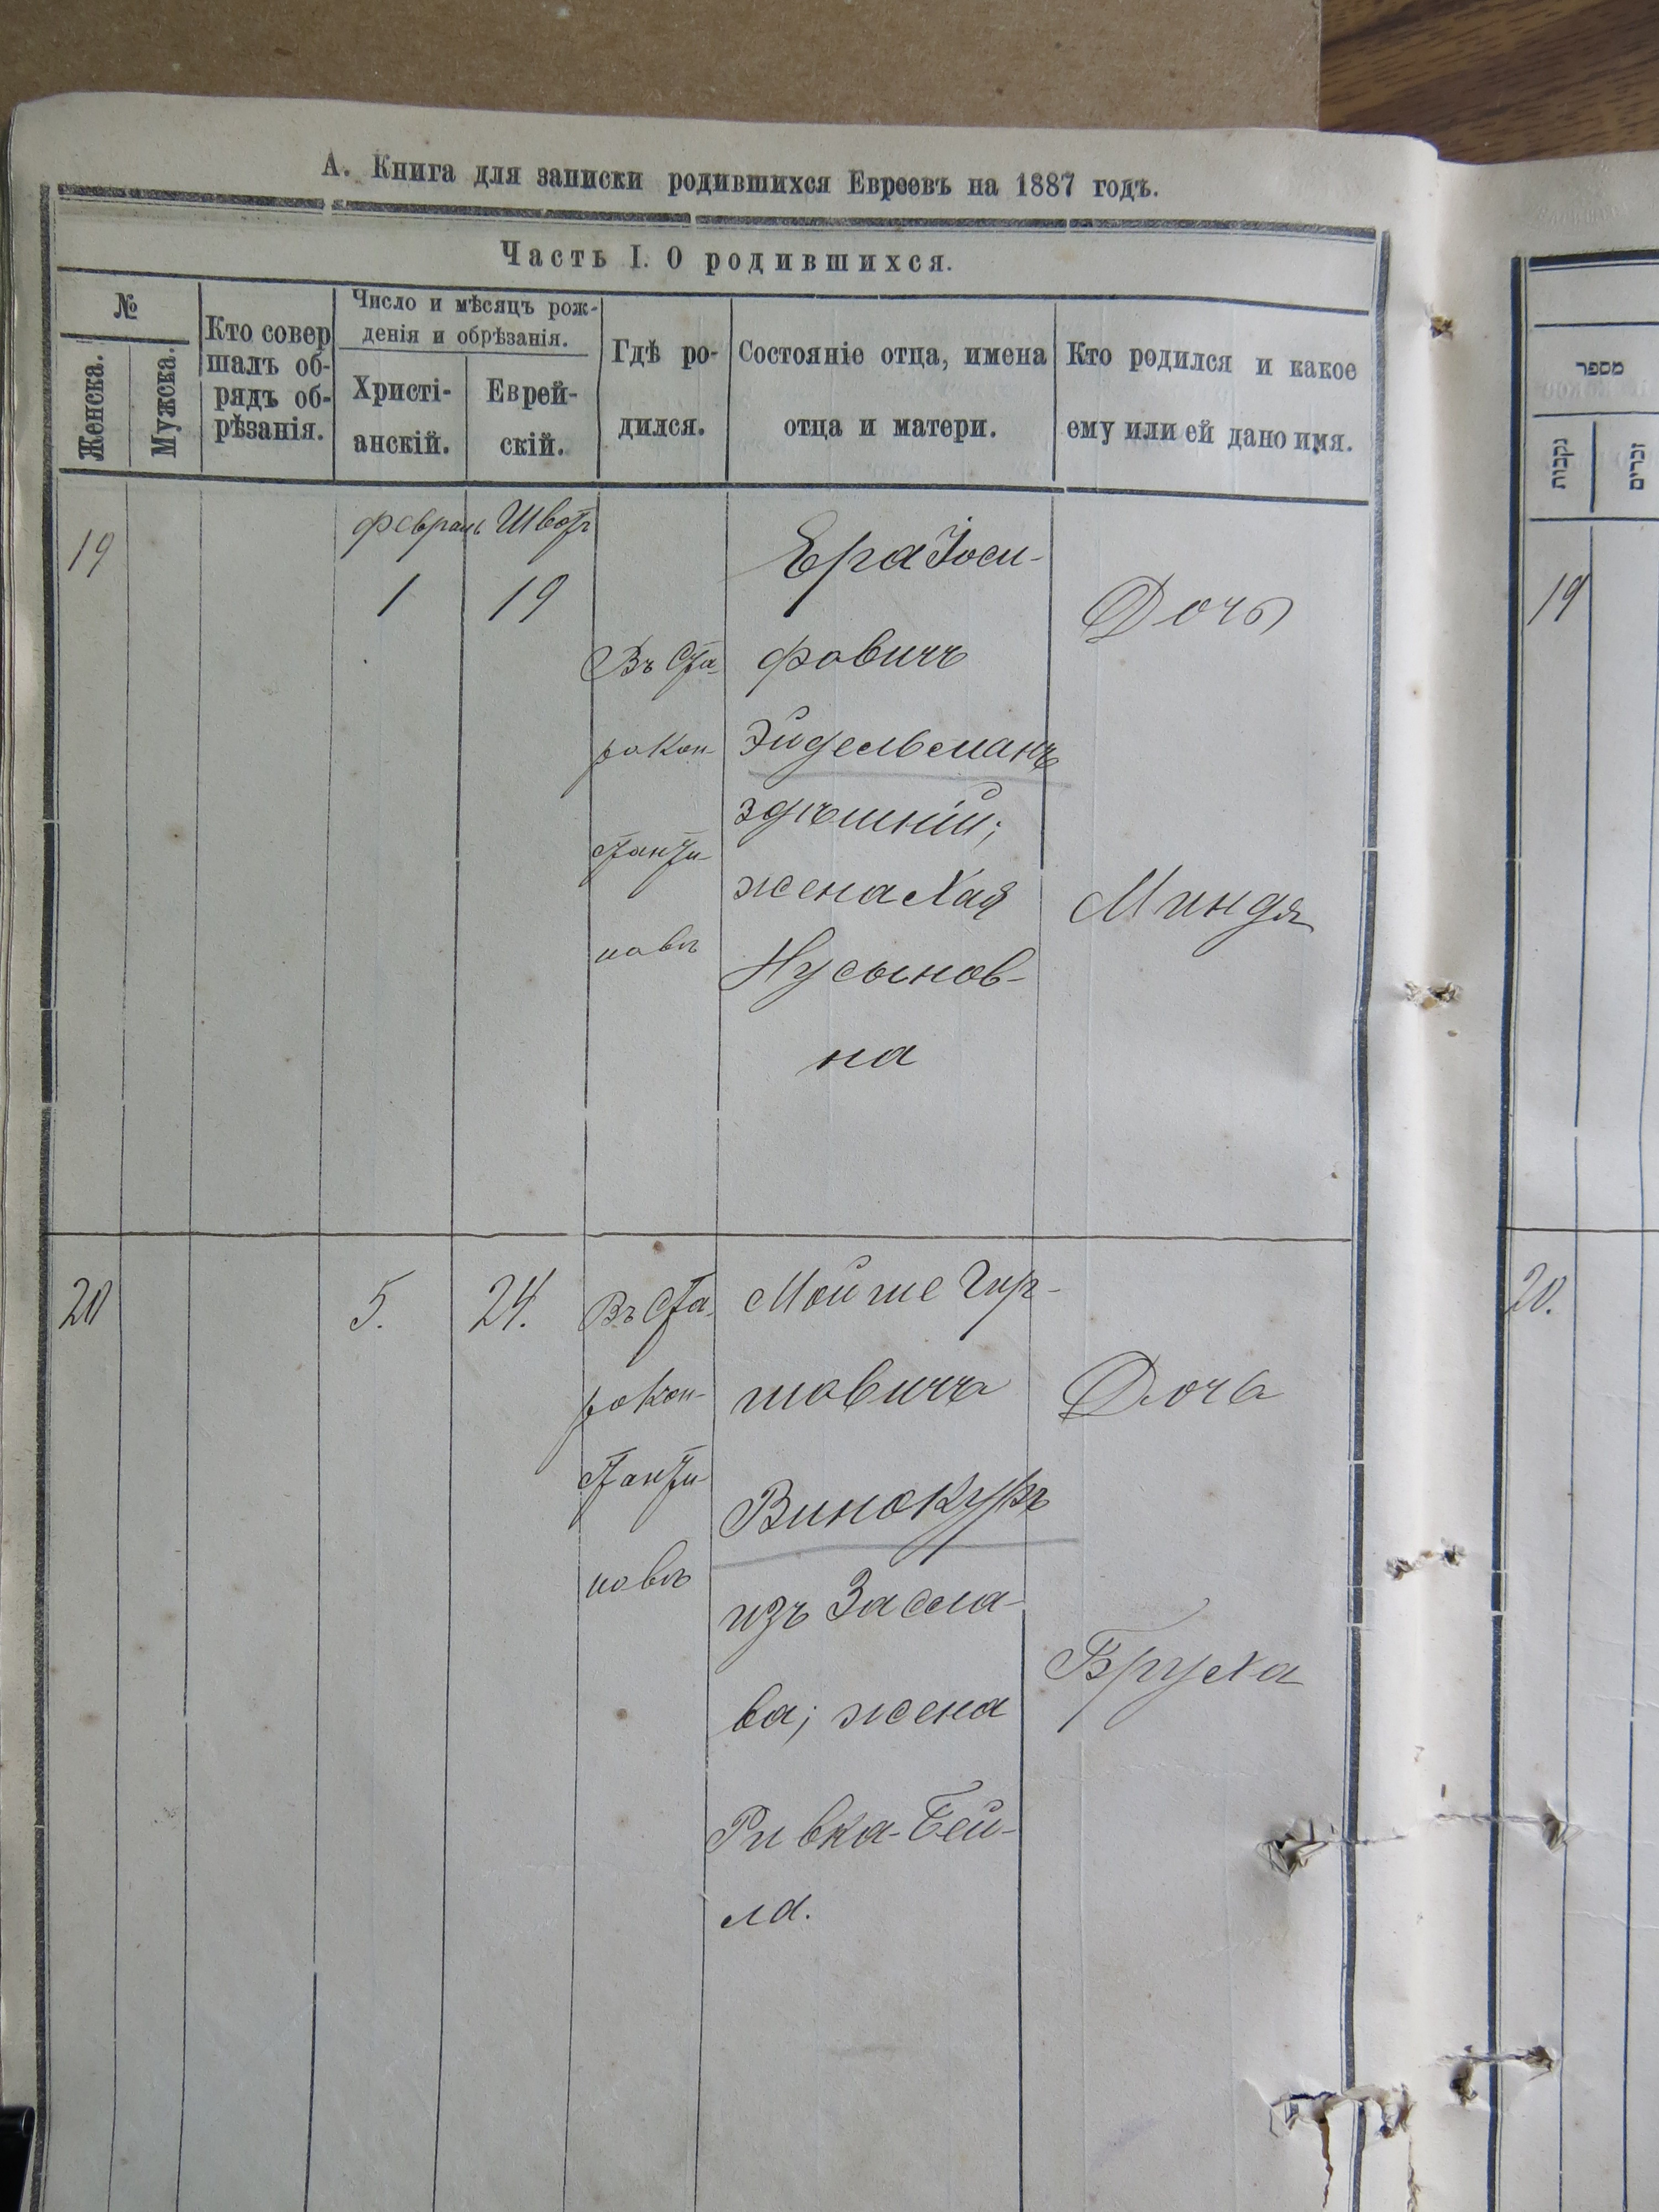 А. Книга для записки родившихся Евреевъ на 1887 годъ.
Часть I. О родившихся.
№
Женска.
Мужска.
Кто совер
шалъ об-
рядъ об-
рѣзанія.
Число и мѣсяцъ рож-
денія и обрѣзанія.
Христі-
анскій.
Еврей-
скій.
Гдѣ ро-
дился.
Состояніе отца, имена
отца и матери.
Кто родился и какое
ему или ей дано имя.
19
февраль
1
Шватъ
19
Въ Ста-
рокон-
станти-
новѣ
Ера Іоси-
фовичъ
Эйдельманъ
здѣшній;
жена Хая
Нусынов-
на
Дочь
Миндя
20
5.
24.
Въ Ста-
рокон-
станти
новѣ
Мойше Гир-
шовичъ
Винокуръ
изъ Засла-
ва; жена
Ривка-Бей-
ла.
Дочь
Бруха
מספר
נקבות
זכרים
19
20.